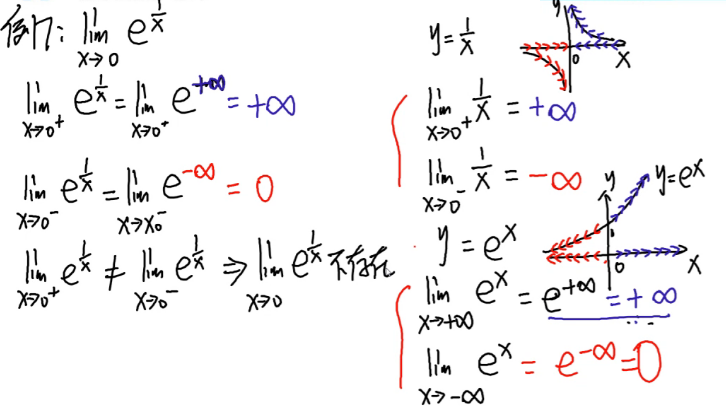 例: lim x→0 e^(1/x)
lim x→0⁺ e^(1/x) = lim x→0⁺ e^(+∞) = +∞
lim x→0⁻ e^(1/x) = lim x→x₀⁻ e^(-∞) = 0
lim x→0⁺ e^(1/x) ≠ lim x→0⁻ e^(1/x) ⇒ lim x→0 e^(1/x) 不存在
y = 1/x
y
0
x
lim x→0⁺ 1/x = +∞
lim x→0⁻ 1/x = -∞
y = e^x
y
y=e^x
1
0
x
lim x→+∞ e^x = e^(+∞) = +∞
lim x→-∞ e^x = e^(-∞) = 0